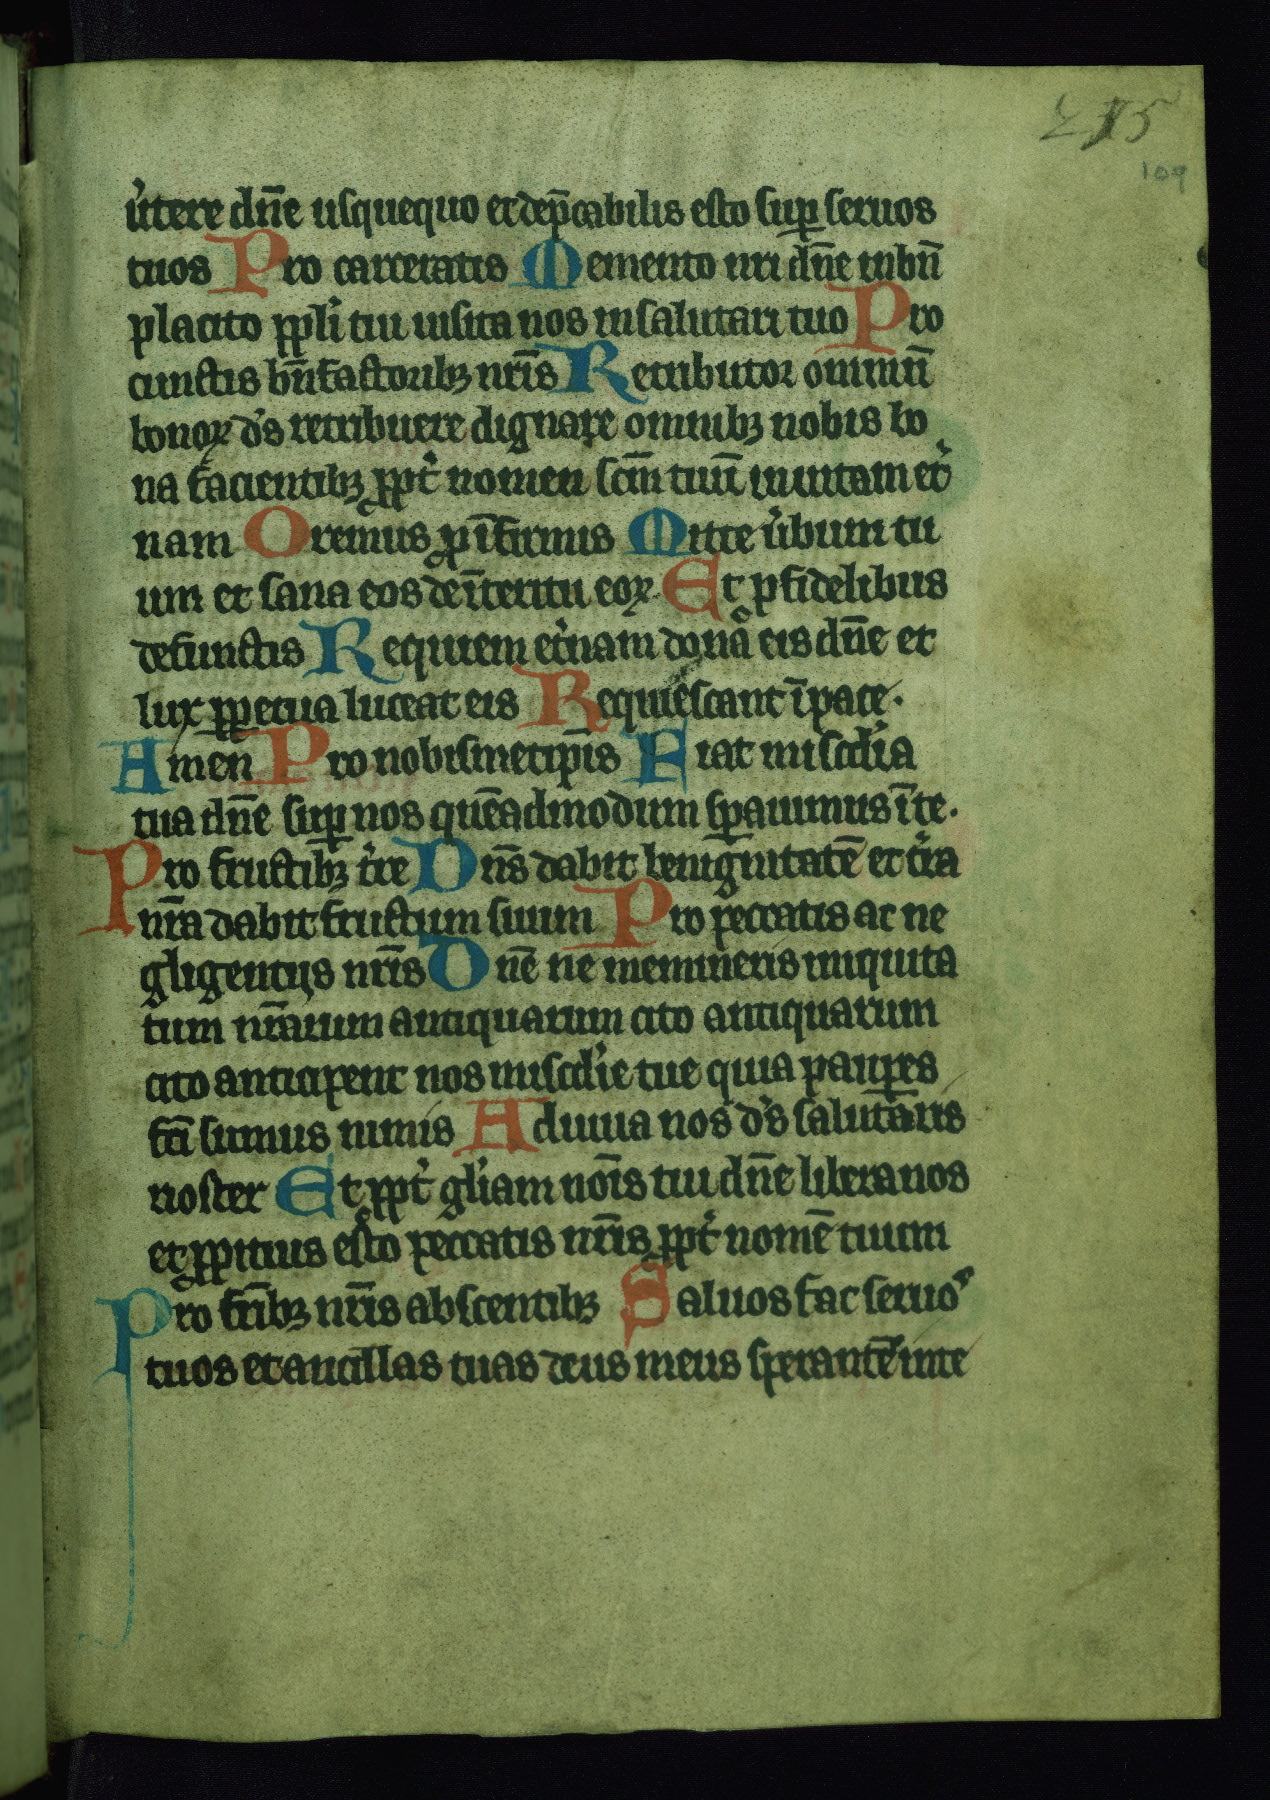 215
109
u̓tere dn̄e usquequo et dep̄cabilis esto suꝑ seruos
tuos Pro carceratis Memento nr̄i dn̄e in bn̄
placito ppl̓i tui uisita nos in salutari tuo Pro
cunctis bn̄factoribꝫ nr̄is Retributor omniū
bonoꝝ d̓s retribuere dignare omnibꝫ nobis bo
na facientibꝫ ꝓpt̓ nomen scm̄ tuū in uitam et̓
nam Oremus ꝓ īfirmis Mitte u̓bum tu
um et sana eos de īteritu eoꝝ. Et ꝓ fidelibus
defunctis Requiem et̓nam dona eis dn̄e et
lux ꝑpetua luceat eis Requiescant ī pace.
Amen Pro nobismetip̄is Fiat miscd̓ia
tua dn̄e suꝑ nos quēadmodum sꝑauimus ī te.
Pro fructibꝫ t̓re Dn̄s dabit benignitatē et t̓ra
nr̄a dabit fructum suum Pro peccatis ac ne
gligentijs nr̄is Dn̄e ne memineris iniquita
tum nr̄arum antiquarum cito antiquarum
cito anticipent nos miscd̓ie tue quia pauꝑes
fc̄i sumus nimis Adiuua nos d̓s salutaris
noster Et ꝓpt̓ gl̓iam nōis tui dn̄e libera nos
et ꝓpitius esto peccatis nr̄is ꝓpt̓ nomē tuum
Pro fr̄ibꝫ nr̄is abscentibꝫ Saluos fac seruos
tuos et ancillas tuas deus meus sperantē in te